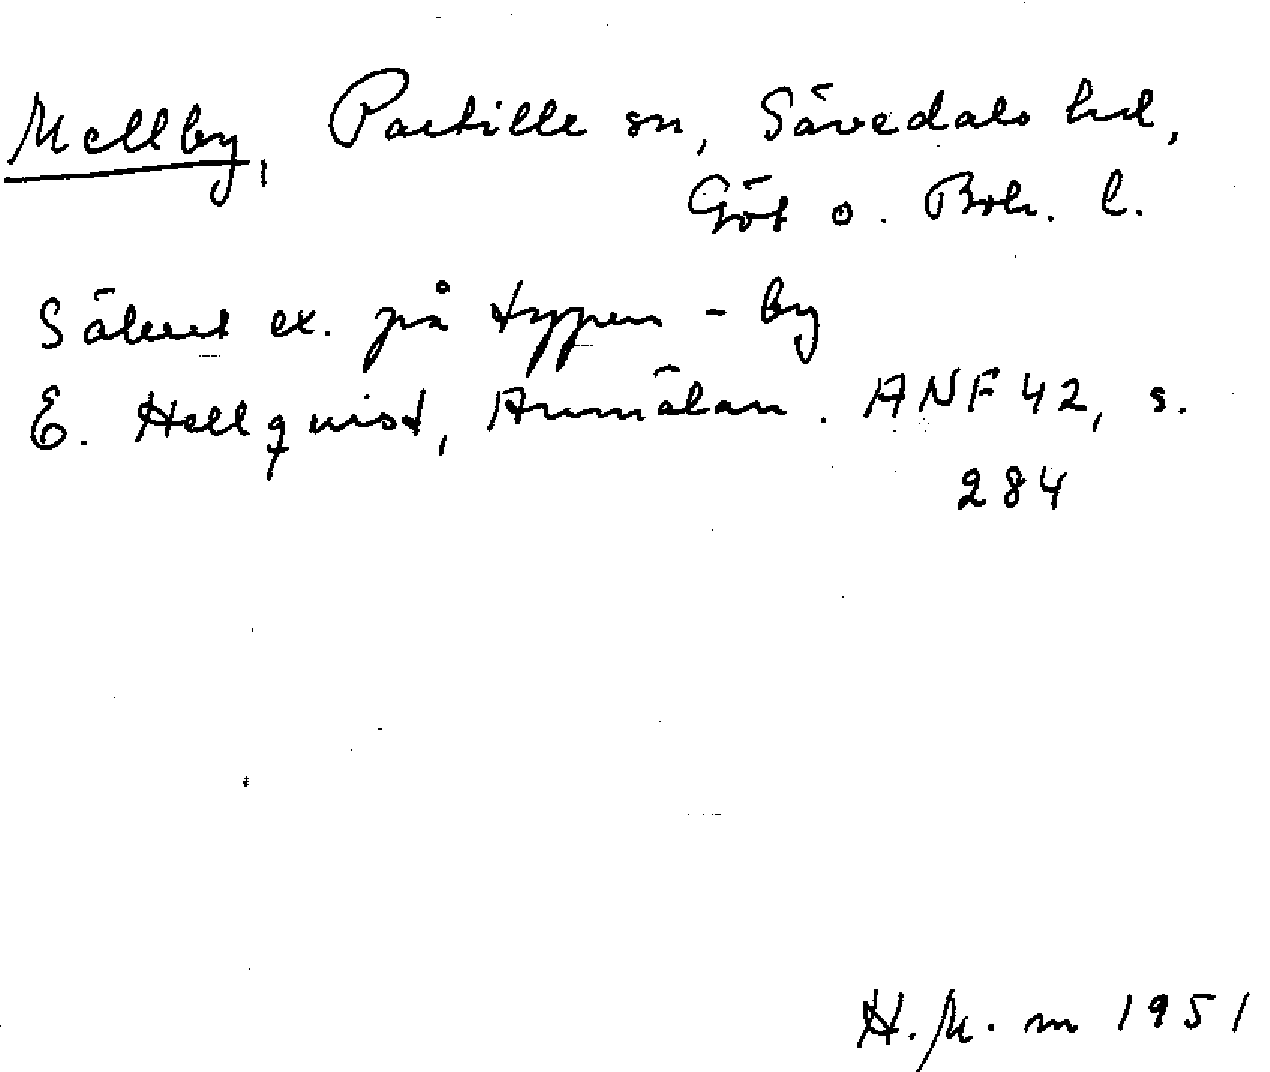 Mellby, Partille sn, Sävedals hd,
Göt o. Boh. l.
Säkert ex. på typen - by
E. Hellquist, Anmälan. ANF 42, s.
284
H. M. m 1951